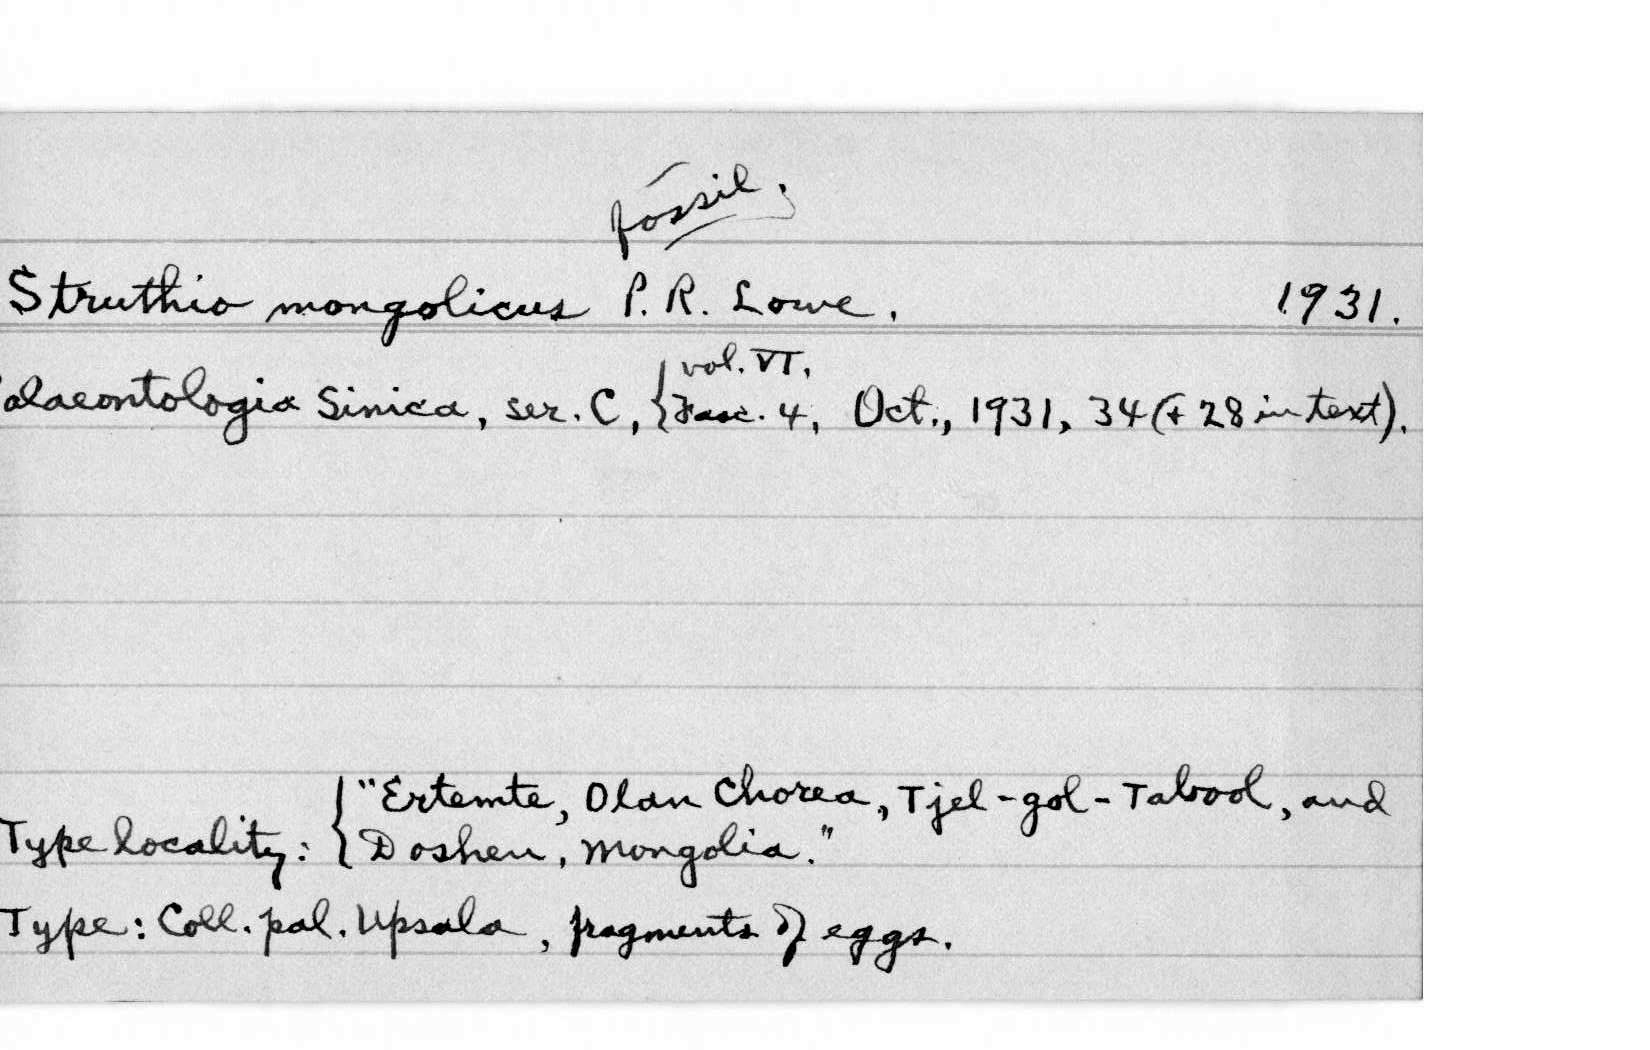 fossil.
Struthio mongolicus P. R. Lowe. 1931.
vol. VI,
Palaeontologia Sinica, ser. C, { Fasc. 4, Oct., 1931, 34 (+ 28 in text).
{ "Ertemte, Olan Chorea, Tjel-gol-Tabool, and
Type locality: { Doshen, Mongolia."
Type: Coll. pal. Upsala, fragments of eggs.